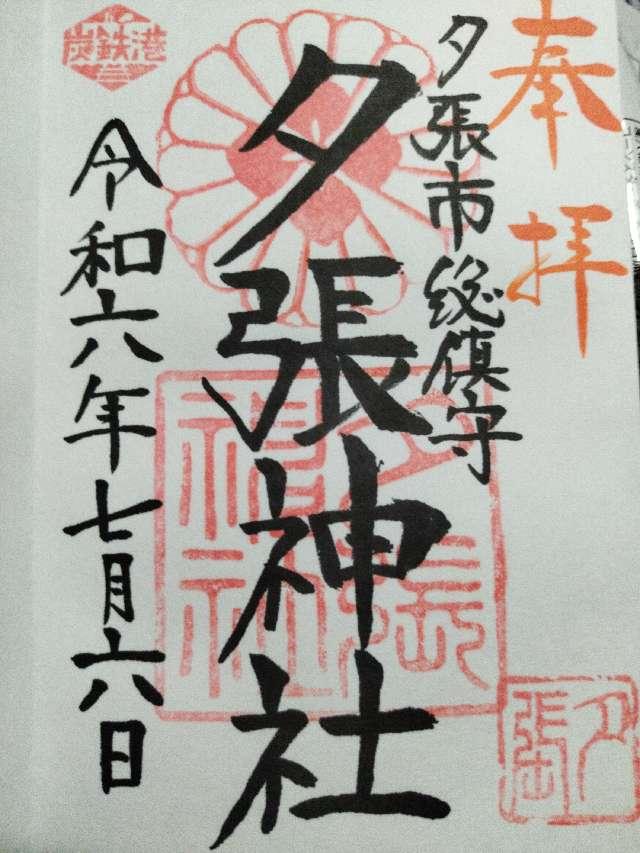 奉拝
夕張市総鎮守
夕張神社
令和六年七月六日
炭鉄港
夕張神社
夕張